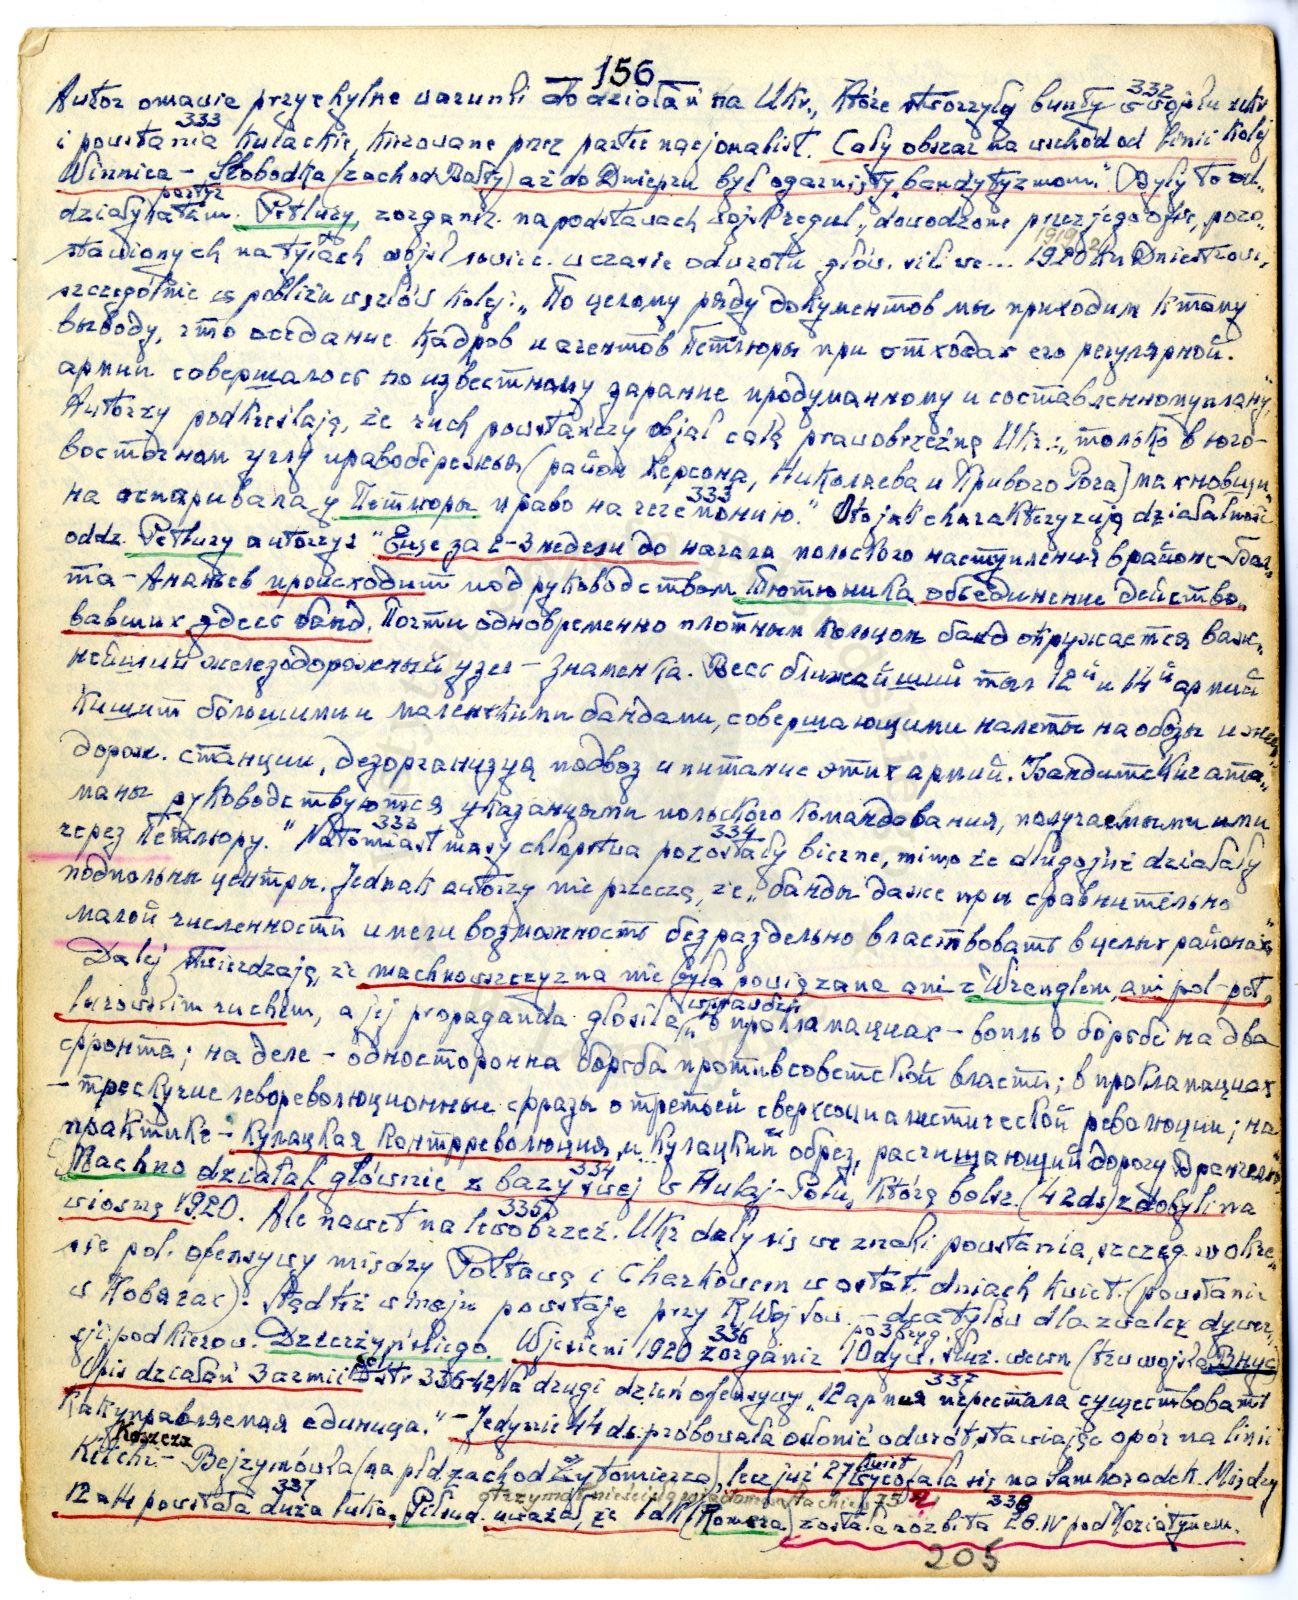 — 156 —
Autor omawia przychylne warunki do działań na Ukr., które stworzyły bunty w wojsku ukr
332
i powstania kułackie, kierowane przez partie nacjonalist. Cały obszar na wschód od linii kolej
333
Winnica – Słobodka (zachod. Bałty) aż do Dniepru był ogarnięty „bandytyzmom." Były to od„
działy partyz. atam. Petlury, zorganiz. na podstawach wojsk regul., dowodzone przez jego ofic., pozo„
stawionych na tyłach wojsk sowiec. w czasie odwrotu głów. sił w 1919 1920 ku Dniestrowi,
szczególnie w pobliżu węzłów kolej: „По целому ряду документов мы приходим к тому
выводу, что оседание кадров и агентов Петлюры при отходах его регулярной.
армии совершалось по известному заранее продуманному и составленному плану."
Autorzy podkreślają, że ruch powstańczy objął całą prawobrzeżną Ukr.: „только в юго-
восточном углу правобережья (район Херсона, Николаева и Кривого Рога) махновщи„
на оспаривала у Петлюры право на гегемонию." Oto jak charakteryzują działalność
333
oddz. Petlury autorzy: "Еще за 2-3 недели до начала польского наступления в районе Бал„
та – Ананьев происходит под руководством Тютюника объединение действо„
вавших здесь банд. Почти одновременно плотным кольцом банд окружается важ„
нейший железнодорожный узел – Знаменка. Весь ближайший тыл 12й и 14й армий
кишит большими и маленькими бандами, совершающими налеты на обозы и жел„
дорож. станции, дезорганизуя подвоз и питание этих армий. Бандитские ата„
маны руководствуются указаниями польского командования, получаемыми ими
через Петлюру." Natomiast masy chłopstwa pozostały bierne, mimo że długo już działały
333 334
подпольны центры. Jednak autorzy nie przeczą, że „банды даже при сравнительно
малой численности имели возможность безраздельно властвовать в целых районах"
Dalej twierdzają, że machnowszczyzna nie była powiązana ani z Wranglem, ani pol-pet„
lurowskim ruchem, a jej propaganda głosiła wprawdzie „в прокламациях – вопль о борьбе на два
фронта; на деле – односторонна борьба против советской власти; в прокламациях
– трескучие левореволюционные фразы о третьей сверхсоциалистической революции; на
практике – кулацкая контрреволюция, и кулацкий обрез, расчищающий дорогу Врангелю"
Machno działał głównie z bazy swej w Hulaj-Polu, którą bolsz. (42 ds) zdobyli na
334
wiosnę 1920. Ale nawet na lewobrzeż. Ukr dały się we znaki powstania, szczeg. w okre„
335
sie pol. ofensywy między Połtawą i Charkowem w ostat. dniach kwiet. (powstanie
w Kobezac). Stąd też w maju powstaje przy R Woj Sow. – dca tyłów dla zwalcz dywer„
sji, pod kierow. Dzierżyńskiego. W jesieni 1920 zorganiz 10 dyw. po 3 bryg. służ. wewn (tzw wojska ВНУС)
336
Opis działań 3 armii sow str 336-42. Na drugi dzień ofensywy „12 армия перестала существовать
337
как управляемая единица." – Jedynie 44 ds. próbowała osłonić odwrót, stawiając opór na linii
Koszcza
Kitchi – Bejzymówka (na płd zachod Żytomierza), lecz już 27 kwiet wycofała się na Samhorodek. Między
12 a 14 powstała duża luka. Piłsud. uważa, że bak (Romera) została rozbita 26.IV pod Koziatynem.
337 338
otrzymał nieścisłą wiadomość
205